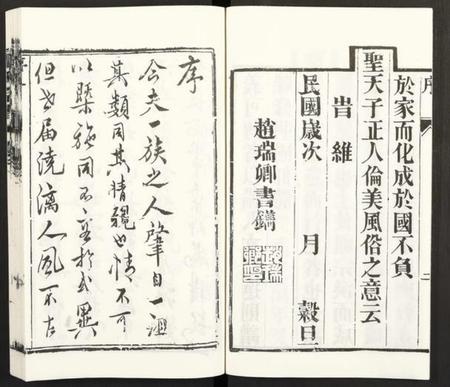 序
二
於家而化成於國不負
聖天子正人倫美風俗之意云
旹維
民國歲次 月 穀旦
趙瑞卿書鐫
序
今夫一族之人肇自一
其類同其情親也情不可
以 族同不
但世届澆漓人風不古